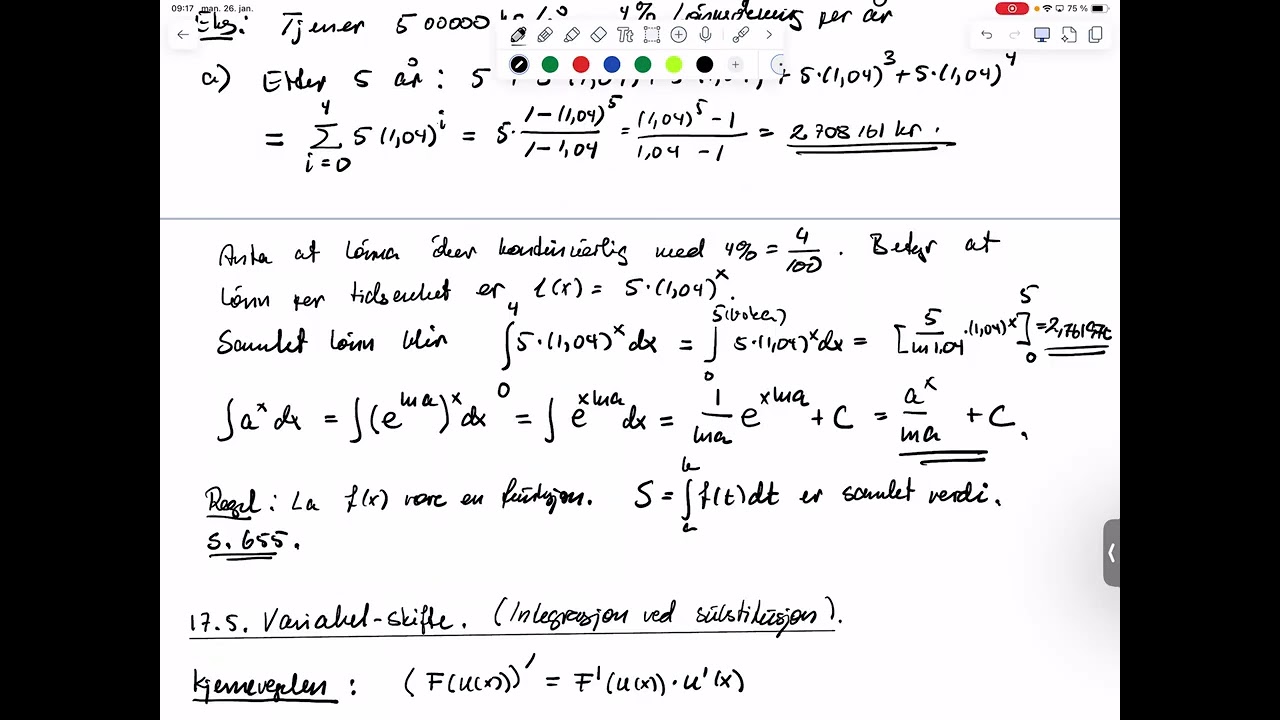 09:17 man. 26. jan. 75 %
Eks: Tjener 500000 kr 4% lønnsøkning per år
a) Etter 5 år: 5 + 5·(1,04)³ + 5·(1,04)⁴
= ∑_{i=0}^{4} 5(1,04)^i = 5· (1-(1,04)⁵)/(1-1,04) = ((1,04)⁵-1)/(1,04-1) = 2 708 161 kr.
Anta at lønna øker kontinuerlig med 4% = 4/100. Betyr at
lønn per tidsenhet er l(x) = 5·(1,04)^x.
Samlet lønn blir ∫_0^4 5·(1,04)^x dx = ∫_0^{5 (boka)} 5·(1,04)^x dx = [5/ln 1,04 ·(1,04)^x]_0^5
∫a^x dx = ∫(e^{ln a})^x dx = ∫e^{x ln a} dx = 1/ln a e^{x ln a} + C = a^x/ln a + C.
Regel: La f(x) være en funksjon. S = ∫f(t)dt er samlet verdi.
S. 655.
17.5. Variabel-skifte. (Integrasjon ved substitusjon).
Kjerneregelen: (F(u(x)))' = F'(u(x))·u'(x)